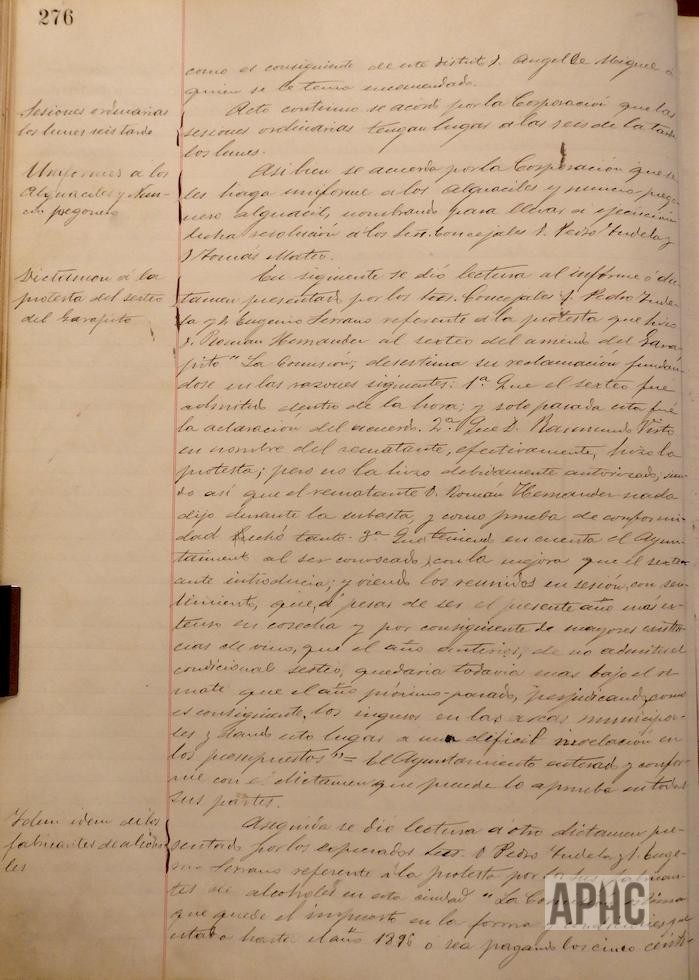 276
como es consiguiente de este distrito D. Angel de Miguel a
quien se le tiene encomendado.
Sesiones ordinarias
los lunes seis tarde
Acto continuo se acordó por la Corporación que las
sesiones ordinarias tengan lugar a las seis de la tarde
los lunes.
Uniformes á los
Alguaciles y Nun-
cio pregonero
Asi bien se acuerda por la Corporación que se
les haga uniforme a los Alguaciles y nuncio prego-
nero alguacil, nombrando para llevar a ejecución
dicha resolución a los Sres. Concejales D. Pedro Tudela y
D Tomás Mateo.
Dictamen á la
protesta del sexteo
del Garapito
En siguiente se dió lectura al informe ó dic-
tamen presentado por los Sres. Concejales D. Pedro Tude-
la y D. Eugenio Serrano referente a la protesta que hizo
D. Román Hernander al sexteo del arriendo del Gara-
pito "La Comisión, desestima su reclamación fundan-
dose en las razones siguientes: 1ª Que el sexteo fué
admitido dentro de la hora; y solo pasada esta fué
la aclaración del acuerdo. 2ª Que D. Raimundo
en nombre del rematante, efectivamente, hizo la
protesta; pero no la hizo debidamente autorizado, sien-
do así que el rematante D. Román Hernander nada
dijo durante la subasta, y como prueba de conformi-
dad hechó tanto. 3ª Que teniendo en cuenta el Ayun-
tamiento al ser convocado, con la mejora que el sexte-
ante introducia; y viendo los reunidos en sesión, con sen-
timiento, que, á pesar de ser el presente año más ex-
tenso en cosecha y por consiguiente de mayores existen-
cias de vino, que el año anterior, de no admitir el
condicional sexteo, quedaria todavia mas bajo el re-
mate que el año próximo-pasado, perjudicando, como
es consiguiente, los ingresos en las arcas municipa-
les y dando esto lugar a un déficit nivelación en
los presupuestos"= El Ayuntamiento enterado y confor-
me con el dictamen que precede lo aprueba en todas
sus partes.
Idem idem de los
fabricantes de alcoho-
les
Aseguida se dió lectura á otro dictamen pre-
sentado por los expresados Sres. D Pedro Tudela y D. Euge-
nio Serrano referente á la protesta por los Sres. fabrican-
tes de alcoholes en esta ciudad "La Comisión estima
que quede el impuesto en la forma
hasta el año 1896 o sea pagando los cinco cénti-
APHC